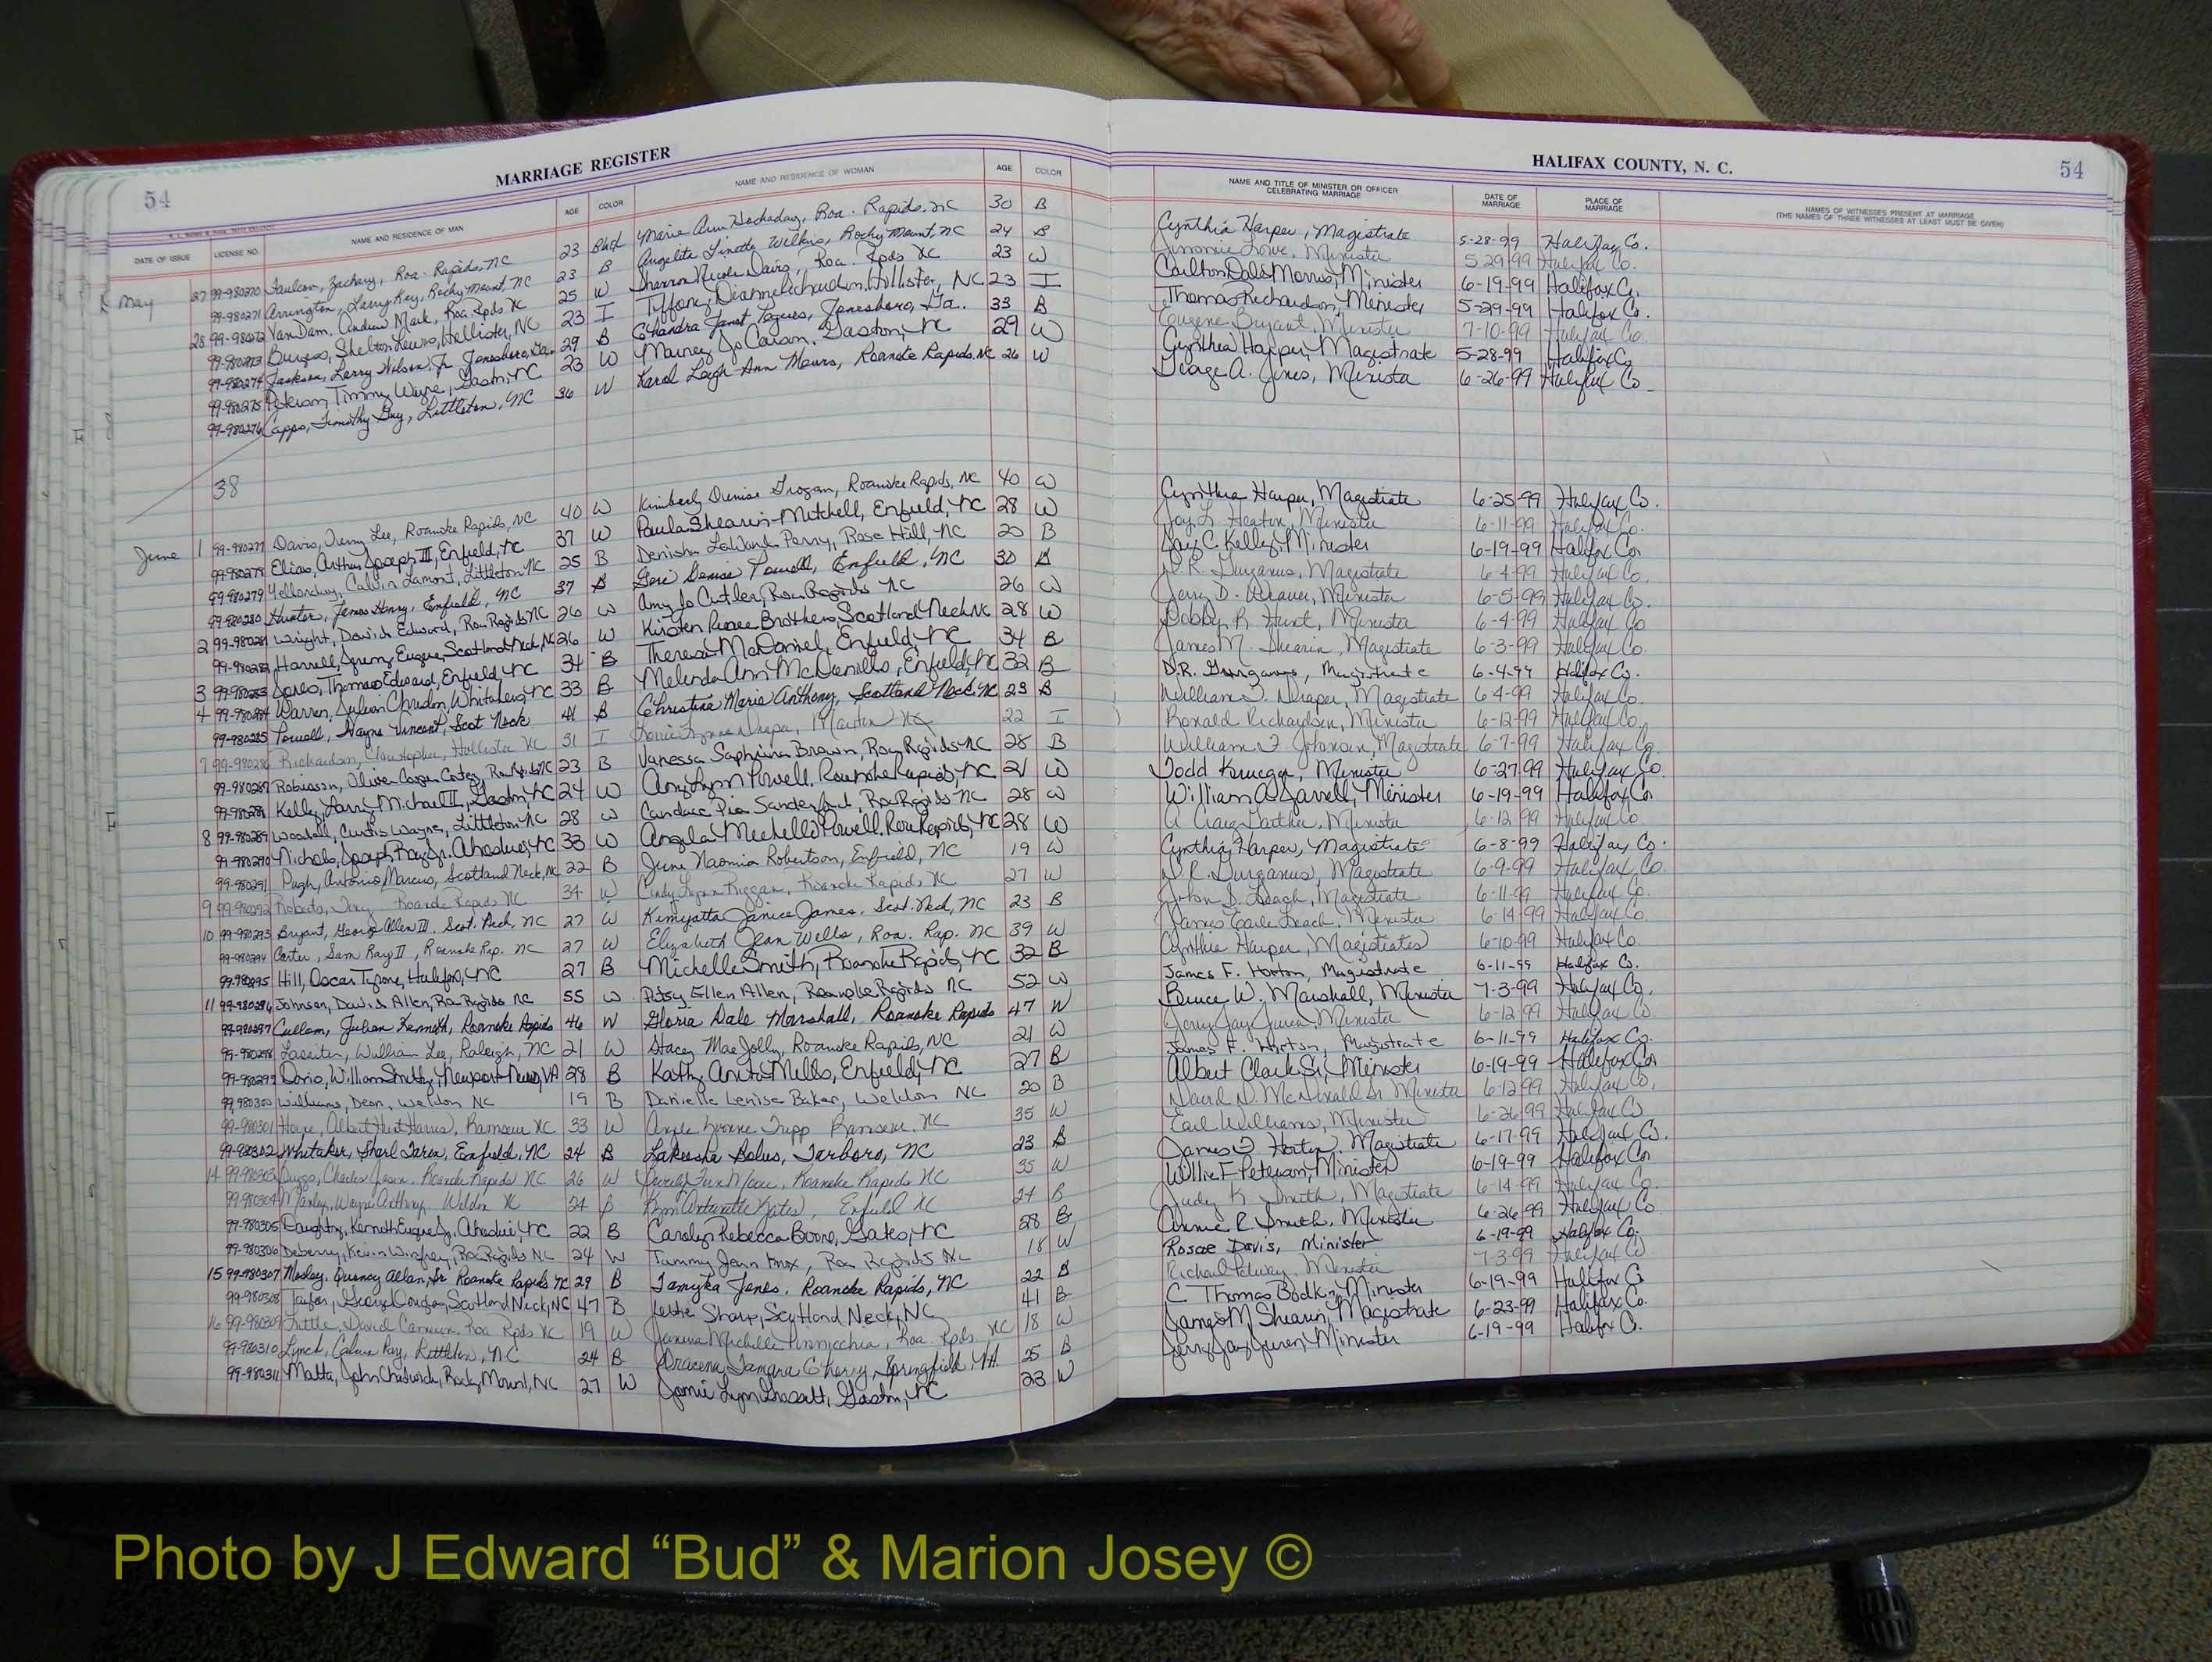 54
MARRIAGE REGISTER
DATE OF ISSUE LICENSE NO. NAME AND RESIDENCE OF MAN AGE COLOR NAME AND RESIDENCE OF WOMAN AGE COLOR
May 27 99-980270 Faulcon, Zachary, Roa. Rapids, NC 23 Marie Ann Hockaday, Roa. Rapids, NC 30 B
99-980271 Arrington, Larry Key, Rocky Mount, NC 23 B Angelita Linette Wilkins, Rocky Mount, NC 24 B
28 99-980272 VanDam, Andrew Mark, Roa Rpds NC 25 W Sharron Nicole Davis, Roa. Rpds NC 23 W
99-980273 Burgess, Shelton Lewis, Hollister, NC 23 I Tiffany Dianne Richardson, Hollister, NC 23 I
99-980274 Jackson, Larry Wilson, Jr. Jonesboro, Ga. 29 B Chandra Janet Jonesboro, Ga. 33 B
99-980275 Peterson, Timmy Wayne, Gaston, NC 23 W Jo Gaston, NC 29 W
99-980276 Capps, Timothy Guy, Littleton, NC 36 W Karol Leigh-Ann Roanoke Rapids, NC 26 W
38
June 1 99-980277 Davis, Lee, Roanoke Rapids, NC 40 W Kimberly Denise Grogan, Roanoke Rapids, NC 40 W
99-980278 Elias, Arthur Joseph III, Enfield, NC 37 W Paula Shearin-Mitchell, Enfield, NC 28 W
99-980279 Calvin Lamont, Littleton NC 25 B Denisha Perry, Rose Hill, NC 20 B
99-980280 Hunter, James Henry, Enfield, NC 37 B Geri Denise Powell, Enfield, NC 30 B
2 99-980281 Wright, David Edward, Roa Rapids NC 26 W Amy Jo Cutler, Roa Rapids NC 26 W
99-980282 Harrell, Jeremy Eugene, Scotland Neck, NC 26 W Kirsten Renee Brothers, Scotland Neck NC 28 W
3 99-980283 Jones, Thomas Edward, Enfield, NC 34 B Theresa McDaniel, Enfield, NC 34 B
4 99-980284 Warren, Whitakers, NC 33 B Melinda Ann Enfield, NC 32 B
99-980285 Powell, Wayne Vincent, Scot Neck 41 B Christina Maria Anthony, Scotland Neck, NC 23 B
7 99-980286 Richardson, Christopher, Hollister NC 31 I Lynn 22 I
99-980287 Robinson, Oliver Cooper Roa Rapids NC 23 B Vanessa Saphrina Brown, Roa Rapids NC 28 B
99-980288 Kelly, Larry Michael II, Gaston, NC 24 W Amy Lynn Powell, Roanoke Rapids, NC 21 W
8 99-980289 Woodall, Curtis Wayne, Littleton NC 28 W Candace Sanderford, Roa Rapids NC 28 W
99-980290 Nichols, Joseph Ray Jr. Ahoskie, NC 33 W Angela Mechelle Powell, Roa Rapids, NC 28 W
99-980291 Pugh, Antonio Marcus, Scotland Neck, NC 22 B June Naomia Robertson, Enfield, NC 19 W
9 99-980292 Roberts, Roanoke Rapids NC 34 W Cindy Lynn Riggan, Roanoke Rapids NC 27 W
10 99-980293 Bryant, George Allen III, Scot. Neck, NC 27 W Kimyatta Janice James, Scot. Neck, NC 23 B
99-980294 Carter, Sam Ray II, Roanoke Rap. NC 27 W Elizabeth Jean Wells, Roa. Rap. NC 39 W
99-980295 Hill, Oscar Tyrone, Halifax, NC 27 B Michelle Smith, Roanoke Rapids, NC 32 B
11 99-980296 Johnson, David Allen, Roa Rapids NC 55 W Patsy Ellen Allen, Roanoke Rapids NC 52 W
99-980297 Cullom, Julian Kenneth, Roanoke Rapids 46 W Gloria Dale Marshall, Roanoke Rapids 47 W
99-980298 Lassiter, William Lee, Raleigh, NC 21 W Stacey Mae Jolly, Roanoke Rapids, NC 21 W
99-980299 Davis, William Newport News, VA 28 B Kathy Anita Mills, Enfield, NC 27 B
99-980300 Williams, Deon, Weldon NC 19 B Danielle Lenise Baker, Weldon NC 20 B
99-980301 Albert Ramseur NC 33 W Angie Yvonne Tripp Ramseur, NC 35 W
99-980302 Whitaker, Enfield, NC 24 B Lakeesha Tarboro, NC 23 B
14 99-980303 Charles Jason, Roanoke Rapids NC 26 W Roanoke Rapids NC 35 W
99-980304 Manley, Wayne Anthony, Weldon NC 24 B Antoinette Enfield NC 24 B
99-980305 Daughtry, Kenneth Eugene Jr. Ahoskie, NC 22 B Carolyn Rebecca Boone, Gates, NC 28 B
99-980306 Deberry, Kevin Winfrey, Roa Rapids NC 24 W Tammy Jean Roa Rapids NC 18 W
15 99-980307 Mosley, Quency Allan, Sr Roanoke Rapids NC 29 B Tamyka Jones, Roanoke Rapids, NC 22 B
99-980308 Taylor, George Scotland Neck, NC 47 B Leslie Sharp, Scotland Neck, NC 41 B
16 99-980309 Little, David Roa Rpds NC 19 W Michelle Roa. Rpds. NC 18 W
99-980310 Lynch, Ray, Littleton, NC 24 B Tamara Cherry, Springfield 25 B
99-980311 Matta, John Chadwick, Rocky Mount, NC 27 W Jamie Lynn Gaston, NC 23 W
HALIFAX COUNTY, N. C.
54
NAME AND TITLE OF MINISTER OR OFFICER CELEBRATING MARRIAGE DATE OF MARRIAGE PLACE OF MARRIAGE NAMES OF WITNESSES PRESENT AT MARRIAGE
(THE NAMES OF THREE WITNESSES AT LEAST MUST BE GIVEN)
Cynthia Harper, Magistrate 5-28-99 Halifax Co.
Jimmie Lowe, Minister 5-29-99 Halifax Co.
Carlton Dale Morris, Minister 6-19-99 Halifax Co.
Thomas Richardson, Minister 5-29-99 Halifax Co.
Eugene Bryant, Minister 7-10-99 Halifax Co
Cynthia Harper, Magistrate 5-28-99 Halifax Co
George A. Jones, Minister 6-26-99 Halifax Co
Cynthia Harper, Magistrate 6-25-99 Halifax Co.
Joy L. Heaton, Minister 6-11-99 Halifax Co.
Jay C. Kelly, Minister 6-19-99 Halifax Co
D.R. Gurganus, Magistrate 6-4-99 Halifax Co.
Jerry D. Weaver, Minister 6-5-99 Halifax Co.
Bobby R. Hunt, Minister 6-4-99 Halifax Co
James M. Shearin, Magistrate 6-3-99 Halifax Co.
D.R. Gurganus, Magistrate 6-4-99 Halifax Co.
William J. Draper, Magistrate 6-4-99 Halifax Co.
Ronald Richardson, Minister 6-12-99 Halifax Co.
William J. Johnson, Magistrate 6-7-99 Halifax Co.
Todd Krueger, Minister 6-27-99 Halifax Co.
William A. Jarrell, Minister 6-19-99 Halifax Co
Craig Minister 6-12-99 Halifax Co
Cynthia Harper, Magistrate 6-8-99 Halifax Co.
D.R. Gurganus, Magistrate 6-9-99 Halifax Co.
John S. Magistrate 6-11-99 Halifax Co.
James Earle Leach, Minister 6-14-99 Halifax Co.
Cynthia Harper, Magistrate 6-10-99 Halifax Co.
James F. Horton, Magistrate 6-11-99 Halifax Co.
Bruce W. Marshall, Minister 7-3-99 Halifax Co.
Jerry Jay Minister 6-12-99 Halifax Co.
James F. Horton, Magistrate 6-11-99 Halifax Co.
Albert Clark Sr, Minister 6-19-99 Halifax Co
David D. McDonald Sr Minister 6-12-99 Halifax Co,
Earl Williams, Minister 6-26-99 Halifax Co
James F. Horton, Magistrate 6-17-99 Halifax Co.
Willie F. Peterson, Minister 6-19-99 Halifax Co
Judy K. Smith, Magistrate 6-14-99 Halifax Co.
Annie R. Smith, Minister 6-26-99 Halifax Co
Roscoe Davis, Minister 6-19-99 Halifax Co.
Richard Minister 7-3-99 Halifax Co
C. Thomas Minister 6-19-99 Halifax Co
James M. Shearin, Magistrate 6-23-99 Halifax Co.
Jerry Jay Minister 6-19-99 Halifax Co.
Photo by J Edward “Bud” & Marion Josey ©